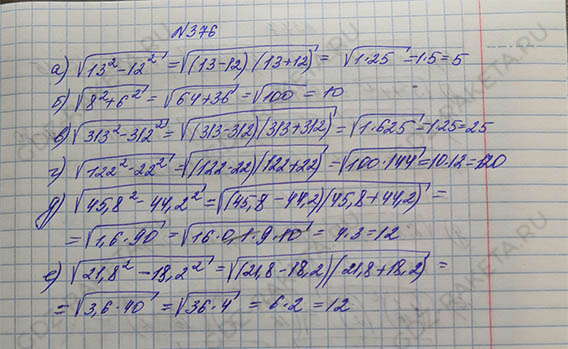 №376
а) √(13²-12²) = √((13-12)(13+12)) = √(1·25) = 1·5 = 5
б) √(8²+6²) = √(64+36) = √100 = 10
в) √(313²-312²) = √((313-312)(313+312)) = √(1·625) = 1·25 = 25
г) √(122²-22²) = √((122-22)(122+22)) = √(100·144) = 10·12 = 120
д) √(45,8²-44,2²) = √((45,8-44,2)(45,8+44,2)) =
= √(1,6·90) = √(16·0,1·9·10) = 4·3 = 12
е) √(21,8²-18,2²) = √((21,8-18,2)(21,8+18,2)) =
= √(3,6·40) = √(36·4) = 6·2 = 12